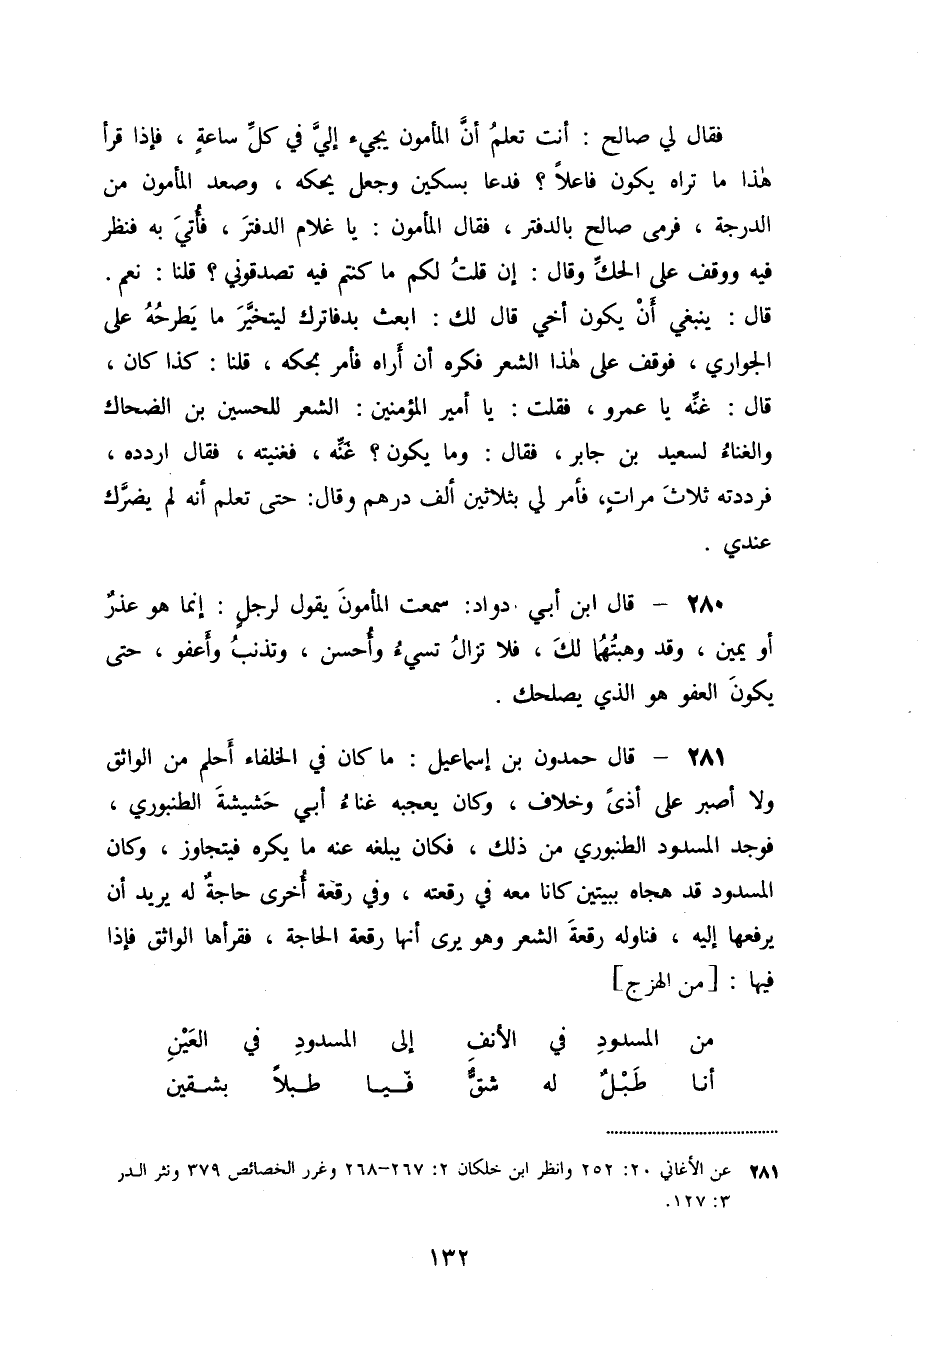 فقال لي صالح : أنت تعلمُ أنَّ المأمون يجيء إليَّ في كلِّ ساعةٍ ، فإذا قرأ
هٰذا ما تراه يكون فاعلاً ؟ فدعا بسكين وجعل يحكه ، وصعد المأمون من
الدرجة ، فرمى صالح بالدفتر ، فقال المأمون : يا غلام الدفترَ ، فأُتيَ به فنظر
فيه ووقف على الحكِّ وقال : إن قلتُ لكم ما كنتم فيه تصدقوني ؟ قلنا : نعم .
قال : ينبغي أَنْ يكون أخي قال لك : ابعث بدفاترك ليتخيَّرَ ما يَطرحُهُ على
الجواري ، فوقف على هٰذا الشعر فكره أن أَراه فأمر بحكه ، قلنا : كذا كان ،
قال : غنِّه يا عمرو ، فقلت : يا أمير المؤمنين : الشعر للحسين بن الضحاك
والغناءُ لسعيد بن جابر ، فقال : وما يكون ؟ غنِّه ، فغنيته ، فقال اردده ،
فرددته ثلاثَ مراتٍ، فأمر لي بثلاثين ألف درهم وقال: حتى تعلم أنه لم يضرَّك
عندي .
٢٨٠ – قال ابن أبي دواد: سمعت المأمونَ يقول لرجلٍ : إنما هو عذرٌ
أو يمين ، وقد وهبتُهُما لكَ ، فلا تزالُ تسيءُ وأُحسن ، وتذنبُ وأَعفو ، حتى
يكونَ العفو هو الذي يصلحك .
٢٨١ – قال حمدون بن إسماعيل : ما كان في الخلفاء أَحلم من الواثق
ولا أصبر على أذىً وخلاف ، وكان يعجبه غناءُ أبي حَشيشةَ الطنبوري ،
فوجد المسدود الطنبوري من ذلك ، فكان يبلغه عنه ما يكره فيتجاوز ، وكان
المسدود قد هجاه ببيتين كانا معه في رقعته ، وفي رقعة أُخرى حاجةٌ له يريد أن
يرفعها إليه ، فناوله رقعةَ الشعر وهو يرى أنها رقعة الحاجة ، فقرأها الواثق فإذا
فيها : [من الهزج]
من المسدودِ في الأنفِ إلى المسدودِ في العَيْنِ
أنا طَبْلٌ له شقٌّ فيا طبلاً بشقين
٢٨١ عن الأغاني ٢٠: ٢٥٢ وانظر ابن خلكان ٢: ٢٦٧–٢٦٨ وغرر الخصائص ٣٧٩ ونثر الدر
٣: ١٢٧.
١٣٢